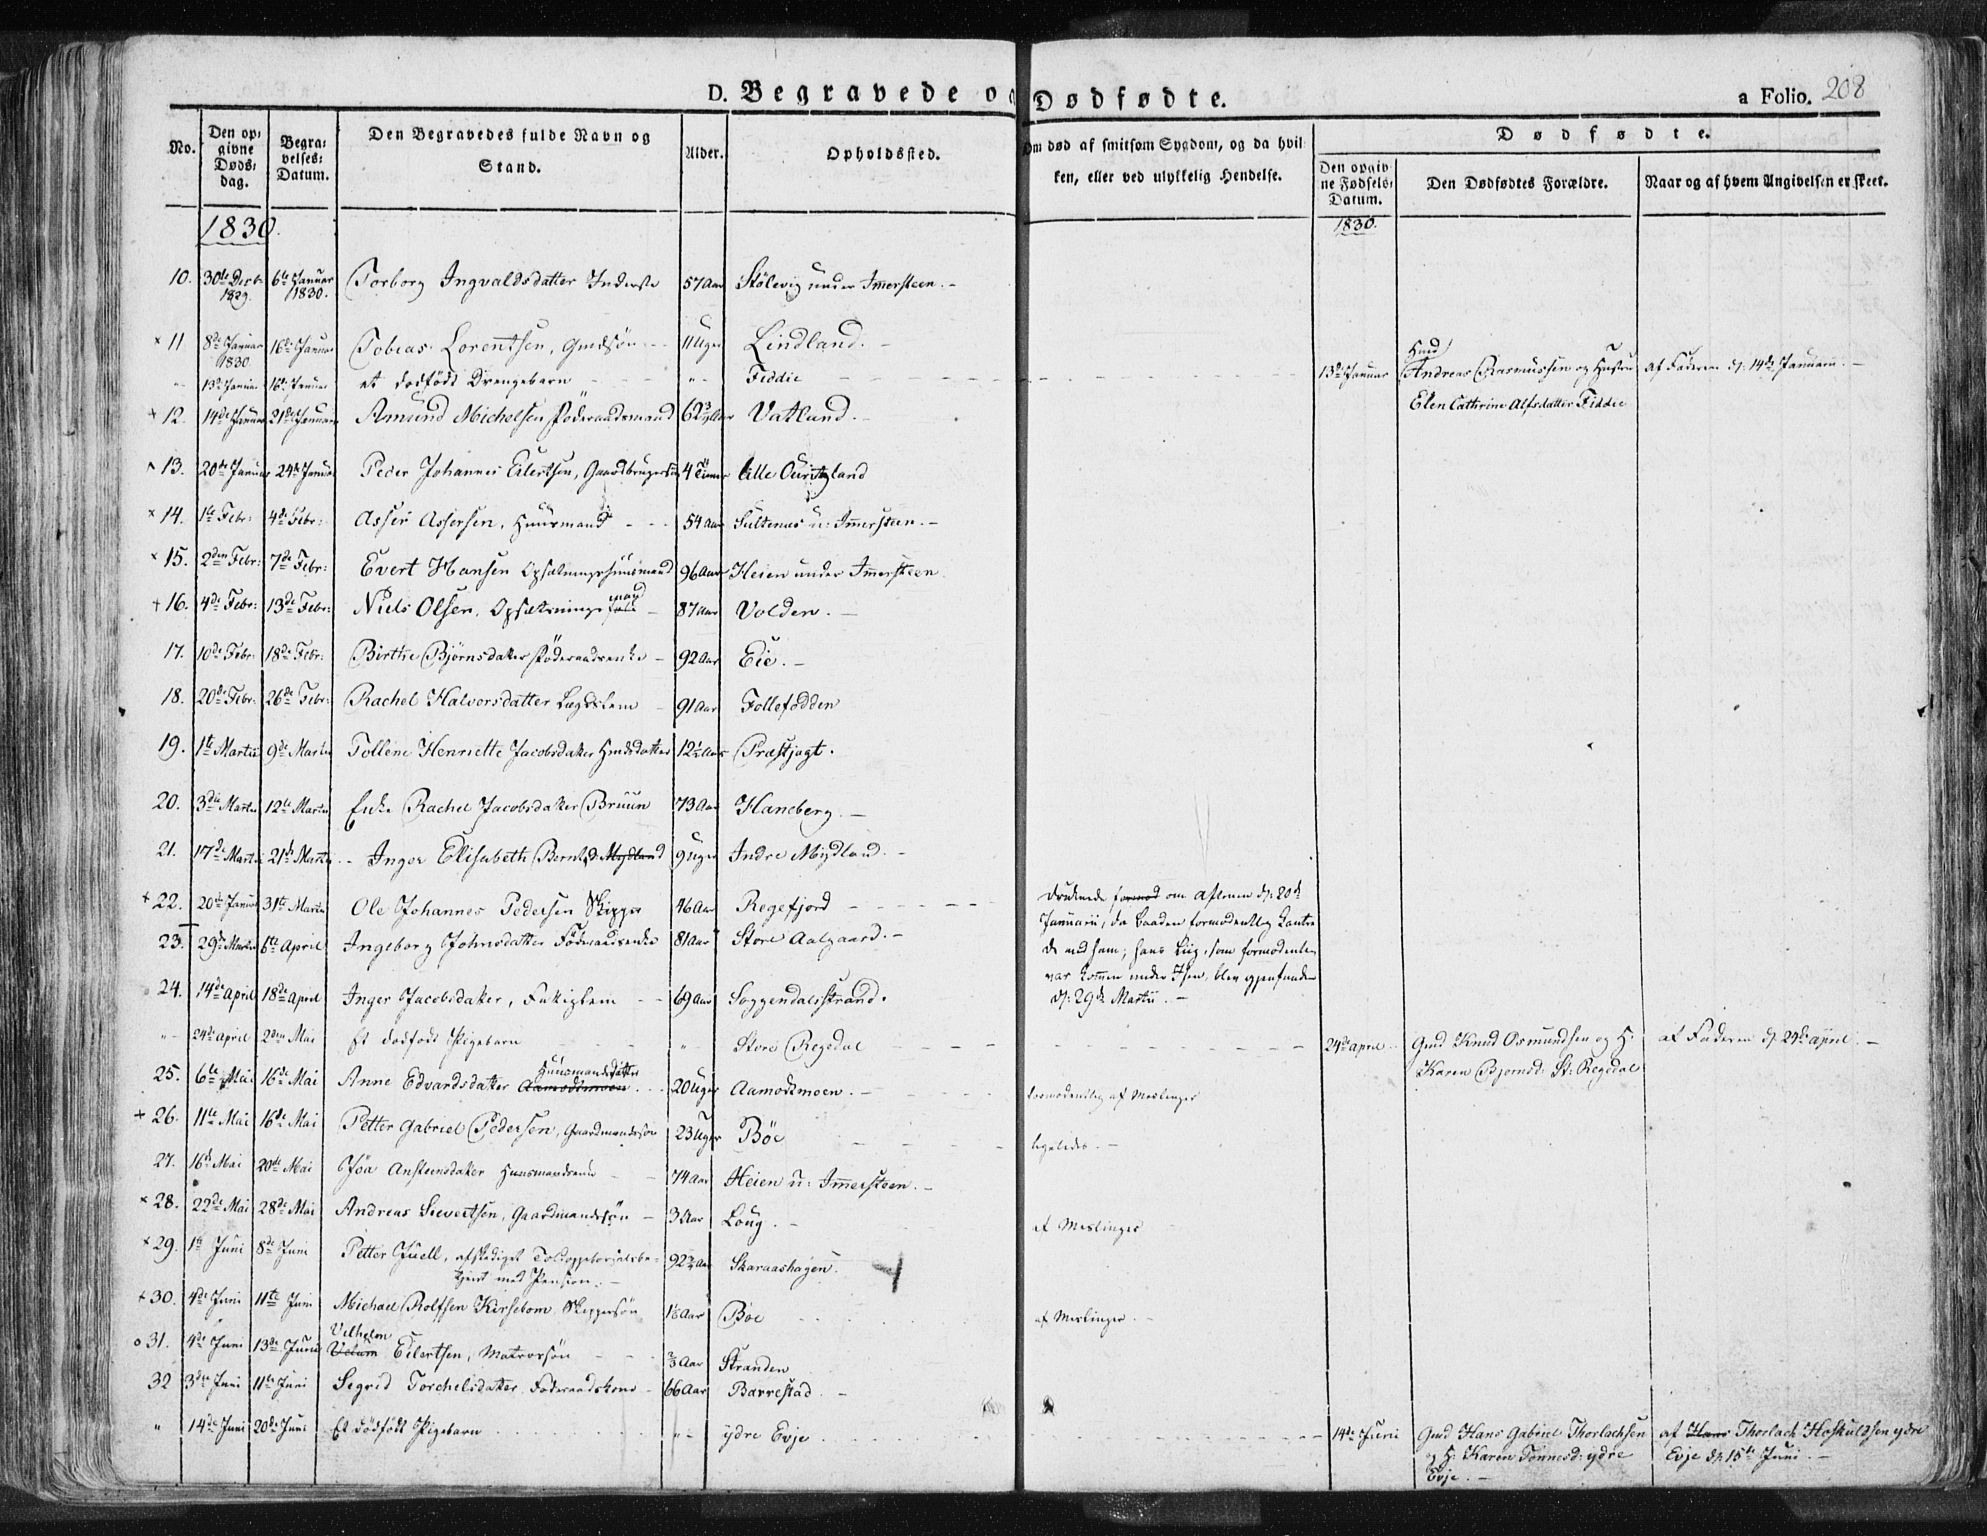 D. Begravede og Dødfødte.
a Folio. 208
No.
Den opgivne Dødsdag.
Begravelses: Datum.
Den Begravedes fulde Navn og Stand.
Alder.
Opholdssted.
Om død af smitsom Sygdom, og da hvilken, eller ved ulykkelig Hendelse.
Dødfødte.
Den opgivne Fødsels: Datum.
Den Dødfødtes Forældre.
Naar og af hvem Angivelsen er skeet.
1830.
1830.
10. 30te Decbr 1829. 6te Januar 1830. Torborg Ingvaldsdatter Inderste 57 Aar Stölevig under Immersteen.
11 8de Januar 1830 16de Januar Tobias Lorentsen, Gmdsøn 11 Uger Lindland.
" 13de Januar 16de Januar et dodfödt Drengebarn " Fiddie 13de Januar Gmd Andreas Rasmussen og Hustru af Faderen d: 14de Januarii.
Elen Cathrine Alfsdatter Fiddie
12. 14de Januar 21de Januar Amund Michelsen Föderaadsmand Vatland.
13. 20de Januar 24de Januar Peder Johannes Eilertsen, Gaardbrugersøn 4 Timer Lille
14. 1te Febr: 4de Febr: Asser Assersen, Huusmand 54 Aar Sultenes u: Immersteen.
15. 2den Febr: 7de Febr: Evert Hansen 96 Aar Heien under Immersteen.
16. 4de Febr: 13de Febr: Niels Olsen, Opsætnings mand 87 Aar Volden.
17. 10de Febr: 18de Febr: Birthe Bjørnsdatter Föderaadsenke 92 Aar Eie.
18. 20de Febr: 26de Febr: Rachel Halvorsdatter Lægdslem 91 Aar Follefodden
19. 1te Martii 9de Martii Tollene Henriette Jacobsdatter Gmdsdatter 12½ Aar Præstjagt.
20. 3die Martii 12te Martii Enke Rachel Jacobsdatter Bruun 73 Aar Haneberg.
21. 17de Martii 21de Martii Inger Elisabeth Bernt.d. Mydland 9 Uger Indre Mydland.
22. 20de Januar 31te Martii Ole Johannes Pedersen Skipper 46 Aar Regefjord
druknede formod om Aftenen d: 20de
Januarii, da Baaden formodentlig kantre
de med ham; hans Liig, som formodentlig
var kommen under Isen, blev gjenfunden
d: 29de Martii.
23. 29de Martii 6te April Ingeborg Johnsdatter Föderaadsenke 81 Aar Store Aalgaard.
24. 14de April 18de April Inger Jacobsdatter, Fattiglem 69 Aar Soggendalsstrand.
" 24de April 2den Mai Et dodfödt Pigebarn " Store Regedal 24de April Gmd Knud Osmundsen og H: af Faderen d: 24de April.
Karen Bjornsd: St: Regedal
25. 6te Mai 16de Mai Anne Edvardsdatter Aamodtmoen Huusmandsdatter 20 Uger Aamodtmoen. formodentlig af Meslinger
26. 11te Mai 16de Mai Petter Gabriel Pedersen, Gaardmandssøn 23 Uger Böe ligeledes.
27. 16de Mai 20de Mai Joa Ansteensdatter Huusmandsenke 74 Aar Heien u: Immersteen.
28. 22de Mai 28de Mai Andreas Sievertsen, Gaardmandssøn 3 Aar Loug. af Meslinger
29. 1te Juni 8de Juni Petter Juell, afskediget Toldoppebørselsbe-
tjent med Pension. 92 Aar Skaraashagen.
30. 4de Juni 11te Juni Michael Rolfsen Kirsebom, Skippersøn Aar Böe af Meslinger.
31. 4de Juni 13de Juni Vilhelm Eilertsen, Matrossøn Aar Stranden
32 3die Juni 11te Juni Segrid Torchelsdatter Föderaadskone 66 Aar Barrestad
" 14de Juni 20de Juni Et dödfödt Pigebarn " ydre Evje 14de Juni Gmd Hans Gabriel Thorlachsen af Hans Thorlach Hoskuldsen ydre
og H: Karen Tönnesd: ydre Evje d: 15de Juni.
Evje.